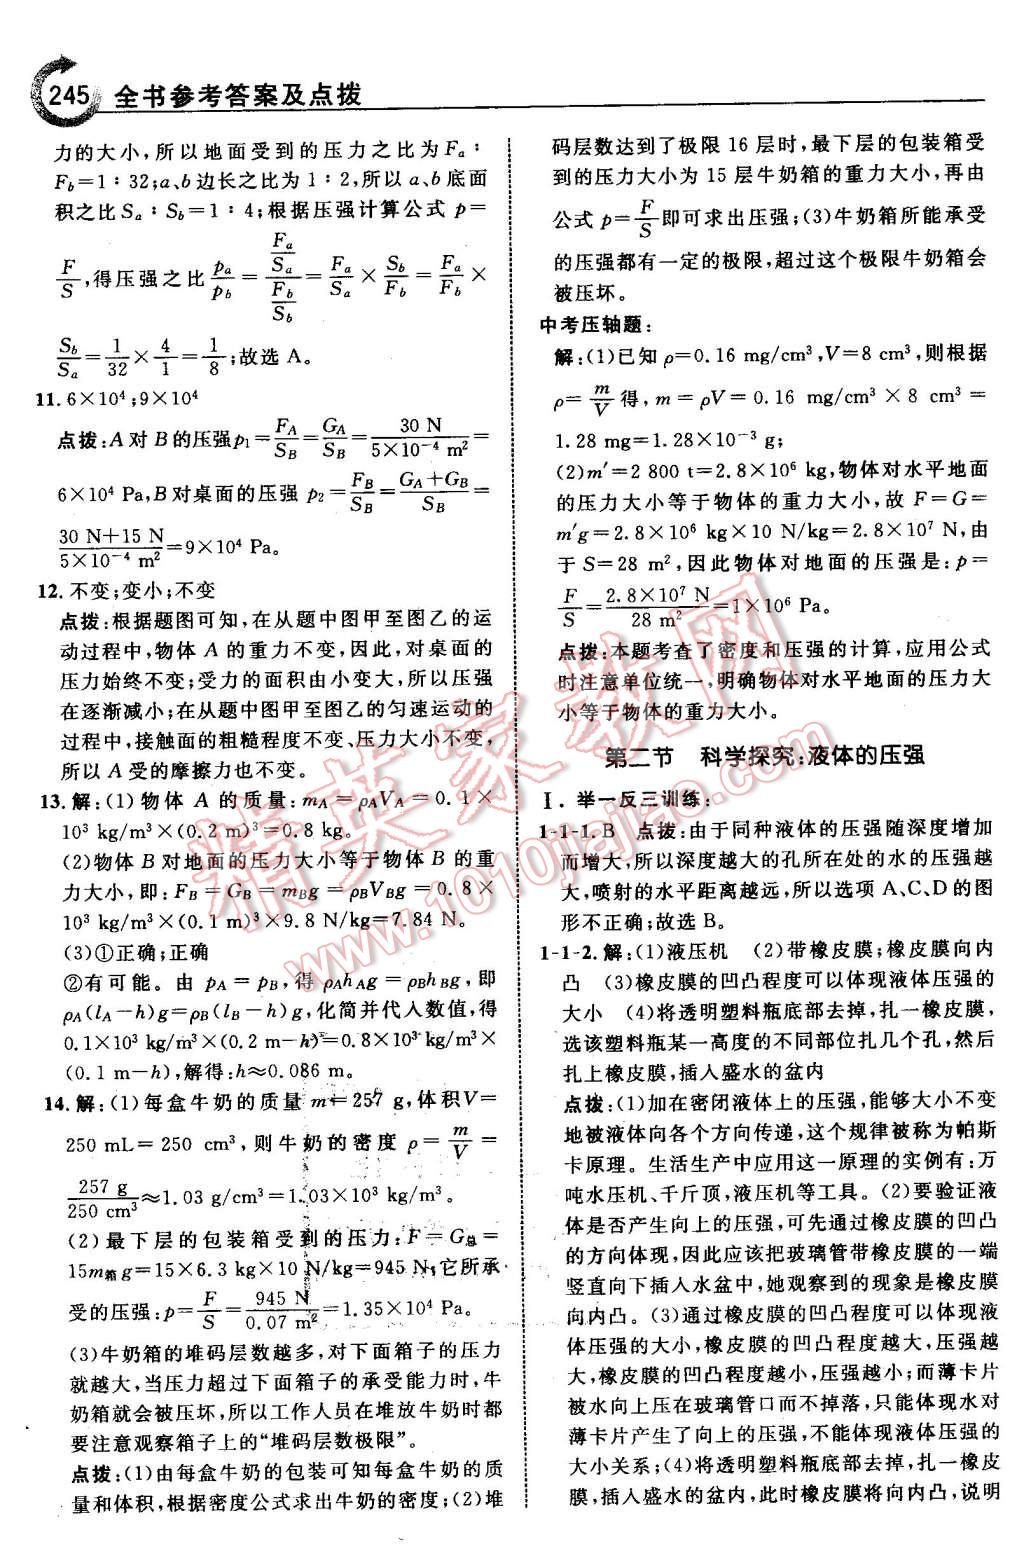 245 全书参考答案及点拨
力的大小，所以地面受到的压力之比为 Fa∶
Fb=1∶32;a、b边长之比为1∶2,所以a、b底面
积之比Sa∶Sb=1∶4;根据压强计算公式 p=
F/S,得压强之比 pa/pb = (Fa/Sa)/(Fb/Sb) = Fa/Sa × Sb/Fb = Fa/Fb ×
Sb/Sa = 1/32 × 4/1 = 1/8;故选A。
11. 6×10⁴;9×10⁴
点拨:A对B的压强p₁= FA/SB = GA/SB = 30 N/(5×10⁻⁴ m²) =
6×10⁴ Pa,B对桌面的压强 p₂= FB/SB = (GA+GB)/SB =
(30 N+15 N)/(5×10⁻⁴ m²) =9×10⁴ Pa。
12. 不变;变小;不变
点拨:根据题图可知,在从题中图甲至图乙的运
动过程中,物体A的重力不变,因此,对桌面的
压力始终不变;受力的面积由小变大,所以压强
在逐渐减小;在从题中图甲至图乙的匀速运动的
过程中,接触面的粗糙程度不变、压力大小不变,
所以A受的摩擦力也不变。
13. 解:(1)物体A的质量:mA=ρAVA=0.1×
10³ kg/m³×(0.2 m)³=0.8 kg。
(2)物体B对地面的压力大小等于物体B的重
力大小,即:FB=GB=mBg=ρBVBg=0.8×
10³ kg/m³×(0.1 m)³×9.8 N/kg=7.84 N。
(3)①正确;正确
②有可能。由 pA=pB,得 ρAhAg=ρBhBg,即
ρA(lA−h)g=ρB(lB−h)g,化简并代入数值,得
0.1×10³ kg/m³×(0.2 m−h)=0.8×10³ kg/m³×
(0.1 m−h),解得:h≈0.086 m。
14. 解:(1)每盒牛奶的质量 m=257 g,体积V=
250 mL=250 cm³,则牛奶的密度 ρ= m/V =
257 g/250 cm³ ≈1.03 g/cm³=1.03×10³ kg/m³。
(2)最下层的包装箱受到的压力:F=G总=
15m箱g=15×6.3 kg×10 N/kg=945 N,它所承
受的压强:p= F/S = 945 N/0.07 m² =1.35×10⁴ Pa。
(3)牛奶箱的堆码层数越多,对下面箱子的压力
就越大,当压力超过下面箱子的承受能力时,牛
奶箱就会被压坏,所以工作人员在堆放牛奶时都
要注意观察箱子上的“堆码层数极限”。
点拨:(1)由每盒牛奶的包装可知每盒牛奶的质
量和体积,根据密度公式求出牛奶的密度;(2)堆
码层数达到了极限16层时,最下层的包装箱受
到的压力大小为15层牛奶箱的重力大小,再由
公式 p= F/S 即可求出压强;(3)牛奶箱所能承受
的压强都有一定的极限,超过这个极限牛奶箱会
被压坏。
中考压轴题:
解:(1)已知 ρ=0.16 mg/cm³,V=8 cm³,则根据
ρ= m/V 得, m = ρV = 0.16 mg/cm³ × 8 cm³ =
1.28 mg=1.28×10⁻³ g;
(2)m′=2 800 t=2.8×10⁶ kg,物体对水平地面
的压力大小等于物体的重力大小,故 F=G=
m′g=2.8×10⁶ kg×10 N/kg=2.8×10⁷ N,由
于S=28 m²,因此物体对地面的压强是: p=
F/S = 2.8×10⁷ N/28 m² =1×10⁶ Pa。
点拨:本题考查了密度和压强的计算,应用公式
时注意单位统一,明确物体对水平地面的压力大
小等于物体的重力大小。
第二节 科学探究:液体的压强
Ⅰ. 举一反三训练:
1-1-1. B 点拨:由于同种液体的压强随深度增加
而增大,所以深度越大的孔所在处的水的压强越
大,喷射的水平距离越远,所以选项A、C、D的图
形不正确;故选B。
1-1-2. 解:(1)液压机 (2)带橡皮膜;橡皮膜向内
凸 (3)橡皮膜的凹凸程度可以体现液体压强的
大小 (4)将透明塑料瓶底部去掉,扎一橡皮膜,
选该塑料瓶某一高度的不同部位扎几个孔,然后
扎上橡皮膜,插入盛水的盆内
点拨:(1)加在密闭液体上的压强,能够大小不变
地被液体向各个方向传递,这个规律被称为帕斯
卡原理。生活生产中应用这一原理的实例有:万
吨水压机、千斤顶,液压机等工具。(2)要验证液
体是否产生向上的压强,可先通过橡皮膜的凹凸
的方向体现,因此应该把玻璃管带橡皮膜的一端
竖直向下插入水盆中,她观察到的现象是橡皮膜
向内凸。(3)通过橡皮膜的凹凸程度可以体现液
体压强的大小,橡皮膜的凹凸程度越大,压强越
大,橡皮膜的凹凸程度越小,压强越小;而薄卡片
被水向上压在玻璃管口而不掉落,只能体现水对
薄卡片产生了向上的压强,不能体现液体压强的
大小关系;(4)将透明塑料瓶底部去掉,扎一橡皮
膜,插入盛水的盆内,此时橡皮膜将向内凸,说明
精英家教网
www.1010jiajiao.com